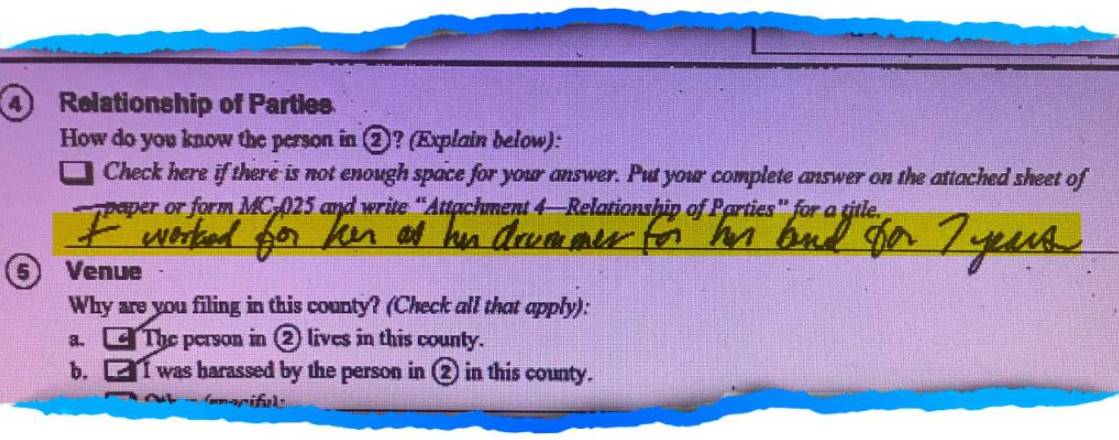 4 Relationship of Parties
How do you know the person in 2? (Explain below):
Check here if there is not enough space for your answer. Put your complete answer on the attached sheet of
paper or form MC-025 and write "Attachment 4—Relationship of Parties" for a title.
I worked for her as her drummer for her band for 7 years
5 Venue
Why are you filing in this county? (Check all that apply):
a. The person in 2 lives in this county.
b. I was harassed by the person in 2 in this county.